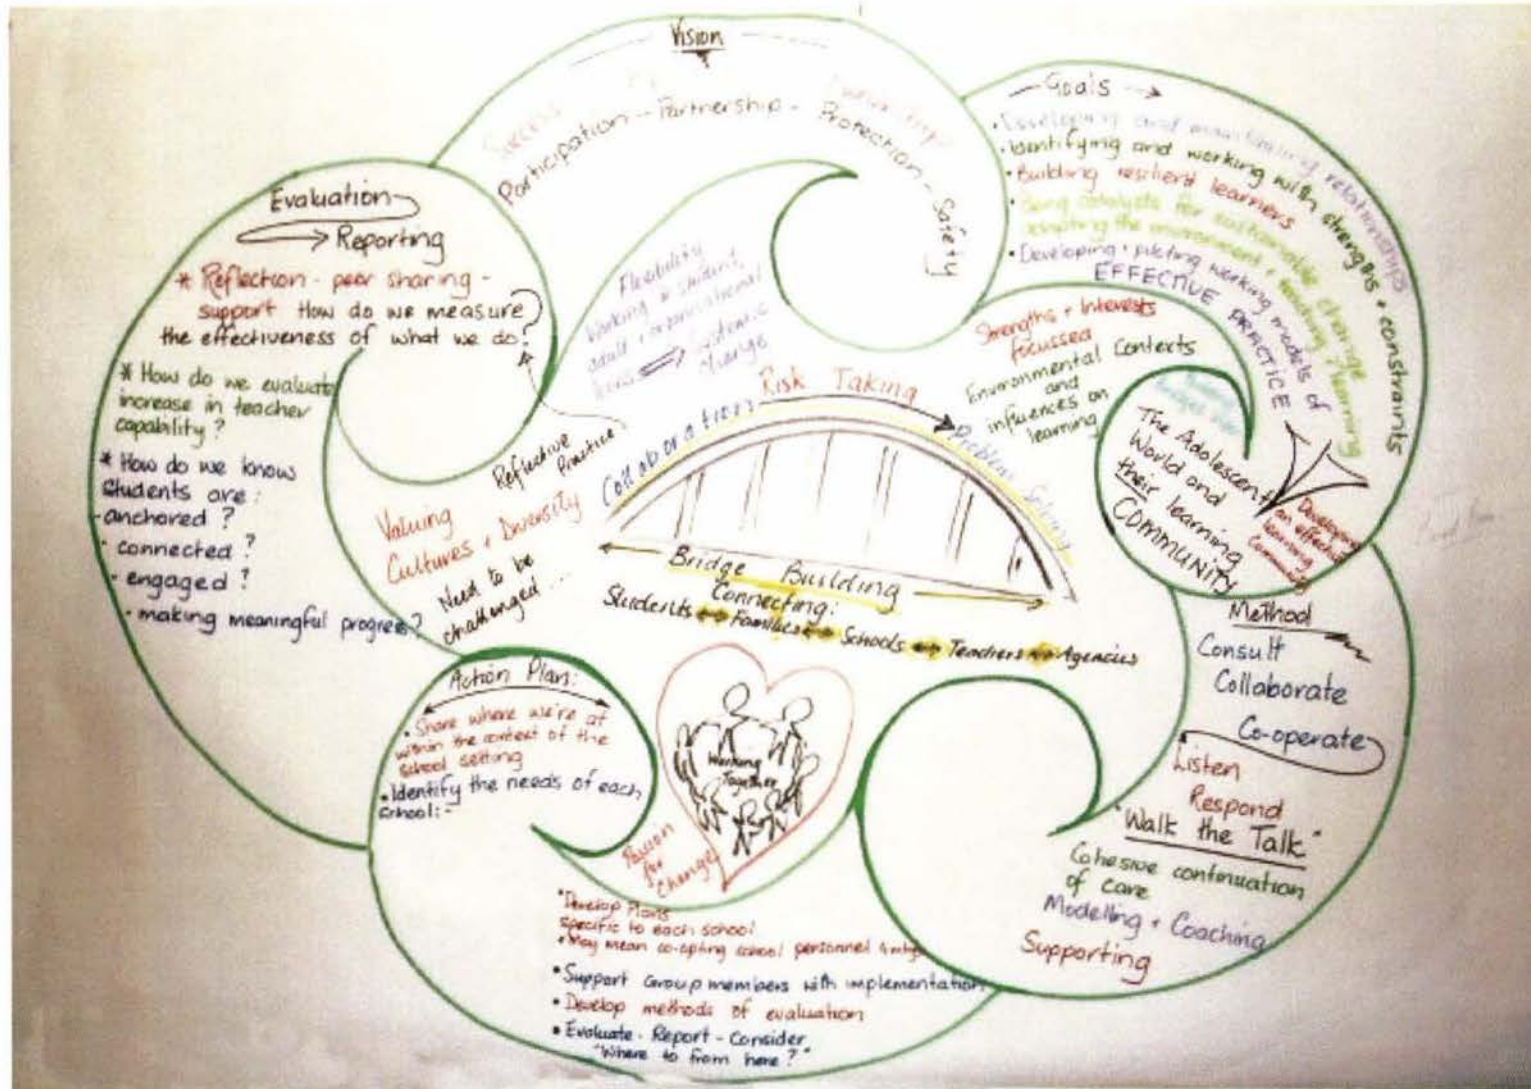 Vision
Success
Participation - Partnership - Protection - Safety
Goals
• Developing and maintaining relationships
• Identifying and working with strengths + constraints
• Building resilient learners
• Being catalysts for sustainable change
adapting the environment + teaching / learning
• Developing + piloting working models of
EFFECTIVE PRACTICE
Evaluation
Reporting
* Reflection - peer sharing -
support How do we measure
the effectiveness of what we do?
* How do we evaluate
increase in teacher
capability?
* How do we know
students are:
- anchored?
- connected?
- engaged?
- making meaningful progress?
Flexibility
Working student,
adult + organisational
lens systemic
change
Reflective
Practice
Valuing
Cultures + Diversity
Need to be
challenged...
Collaboration Risk Taking Problem Solving
Bridge Building
Connecting:
Students Families Schools Teachers Agencies
Strengths + Interests
focussed
Environmental Contexts
and
influences on
learning
The Adolescent
World and
their learning
COMMUNITY
Developing
an effective
learning
Community
Method
Consult
Collaborate
Co-operate
Listen
Respond
"Walk the Talk"
Cohesive continuation
of care
Modelling + Coaching
Supporting
Action Plan:
• Share where we're at
within the context of the
school setting
• Identify the needs of each
school:-
Working
Together
Passion
for
Change
• Develop Plans
specific to each school
• May mean co-opting school personnel
• Support Group members with implementation
• Develop methods of evaluation
• Evaluate - Report - Consider
"Where to from here?"